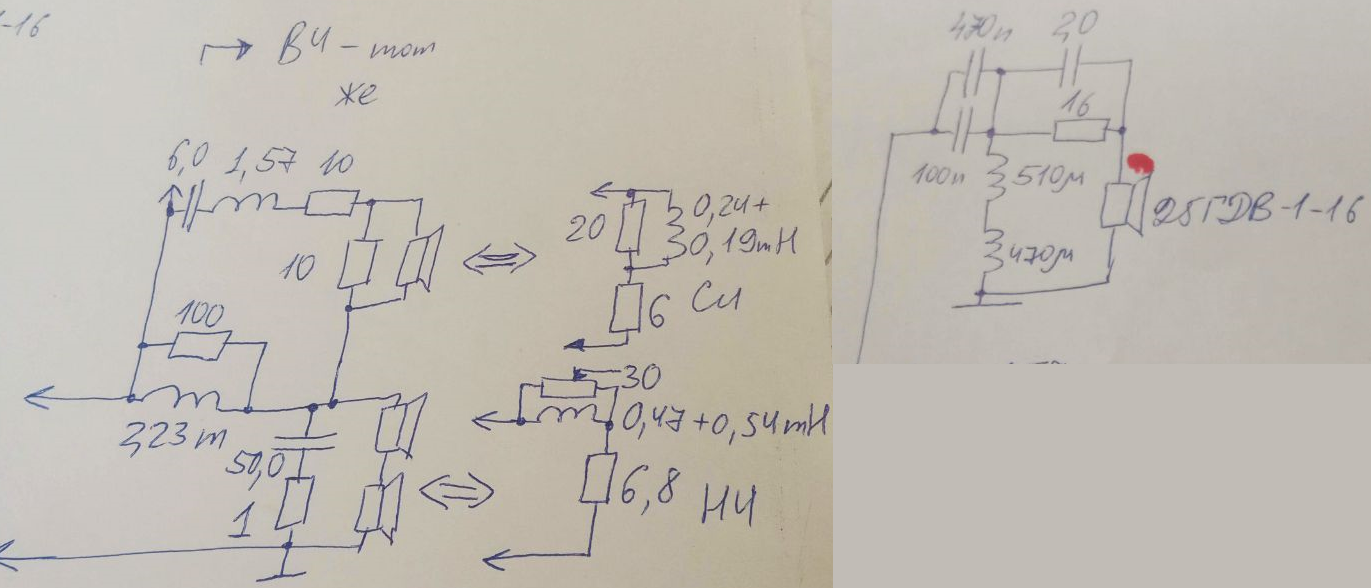 1-16
ВЧ - тот
же
6,0 1,57 10
10
100
2,23 m
50,0
1
20
0,24+
0,19mH
6 СЧ
30
0,47+0,54mH
6,8 НЧ
470n 2,0
16
100n 510µ
25ГДВ-1-16
470µ